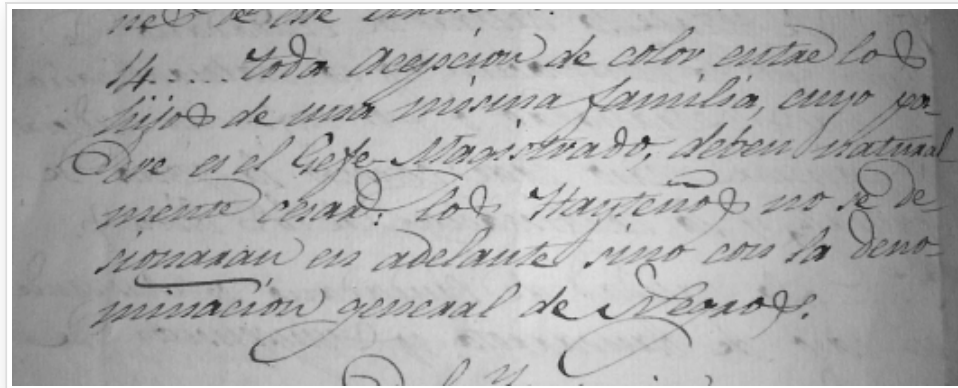 14.... toda acepcion de color entre los
hijos de una misma familia, cuyo pa-
dre es el Gefe-Magistrado, deben natural
mente cesar: los Hayteños no se de
sionaran en adelante sino con la deno-
minacion general de Negros.